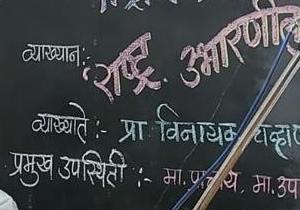 व्याख्यान :-
राष्ट्र उभारणीत
व्याख्याते :- प्रा विनायक चव्हाण
प्रमुख उपस्थिती :- मा. मा. उप